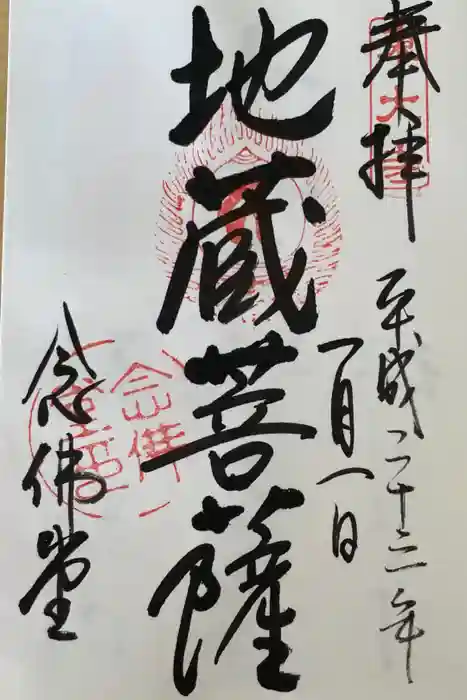 奉拝
平成二十二年
一月八日
地蔵菩薩
念佛堂